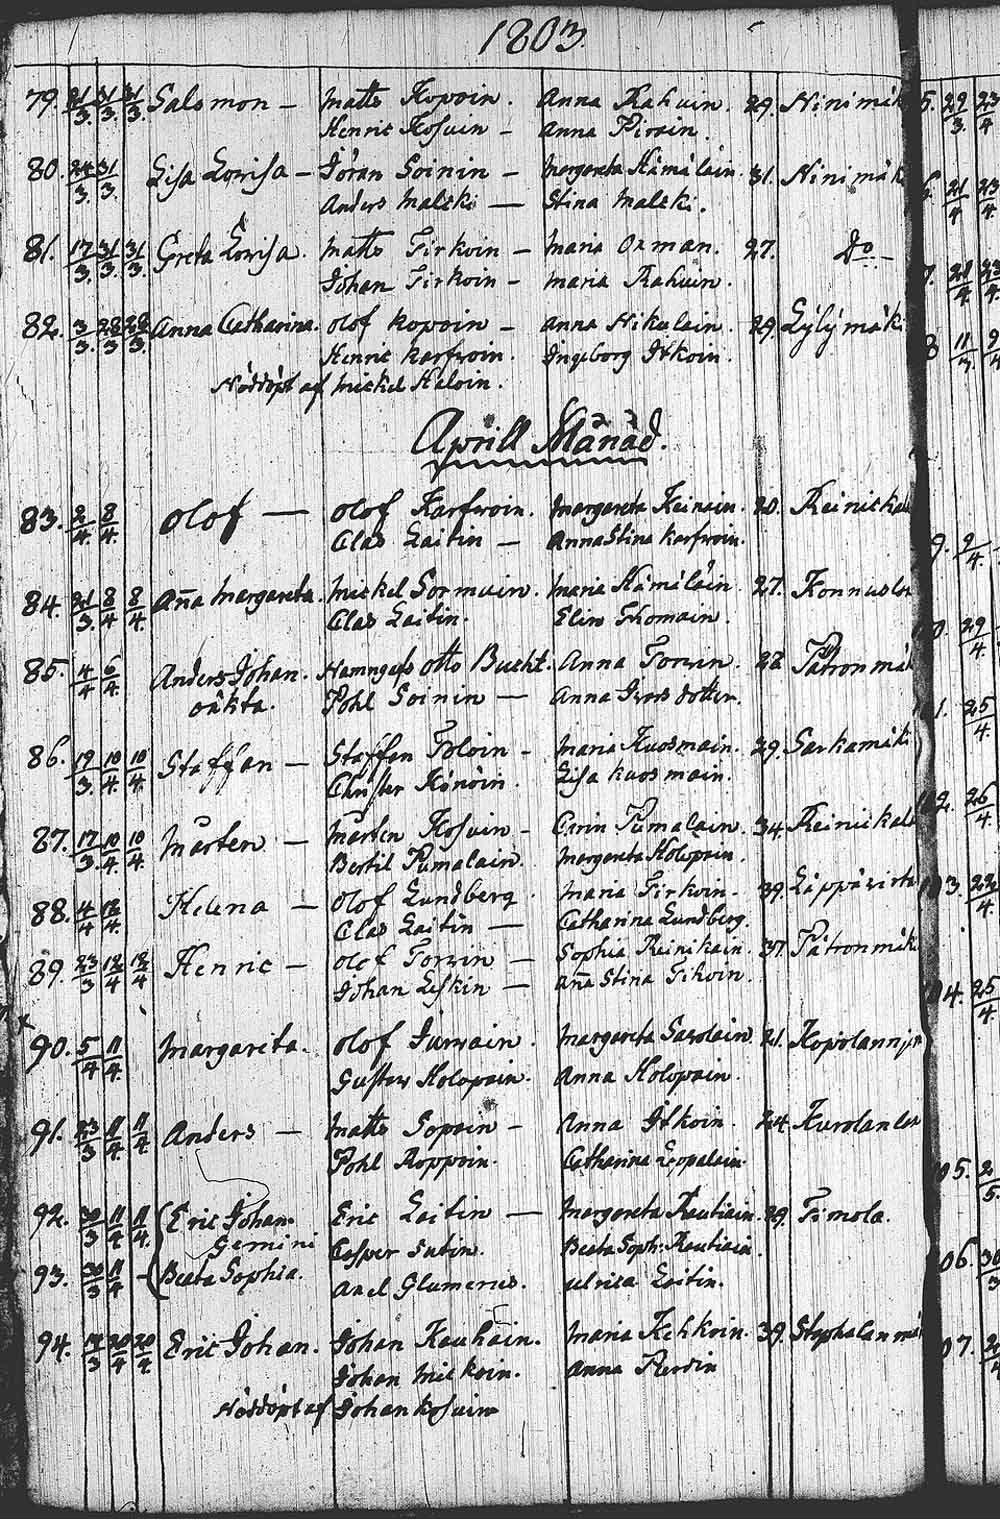 1803.
79. 21/3. 31/3. 31/3. Salomon – Matts Kopoin. Anna Rahuin. 29. Ninimäk
Henric Kosuin – Anna Piroin.
80. 24/3. 31/3. Lisa Lovisa – Jöran Soinin – Margareta Hämäläin. 31. Ninimäk
Anders Malski — Stina Malski.
81. 17/3. 31/3. 31/3. Greta Lovisa. Matts Tirkoin – Maria Oxman. 27. Do –
Johan Tirkoin – Maria Rahuin.
82. 3/3. 28/3 28/3. Anna Catharina. Olof Kopoin – Anna Nikulain. 29. Lylymäki
Henric Karfwoin. Ingeborg Itkoin.
Nöddöpt af Mickel Haloin.
Aprill Månad.
83. 2/4. 8/4. Olof — Olof Karfwoin. Margareta Keinäin. 20. Reinickal
Clas Laitin – Anna Stina Karfwoin.
84. 21/3. 8/4 8/4. Aña Margareta. Mickel Sormuin. Maria Hämäläin. 27. Konnuslax
Clas Laitin. Elin Thomain.
85. 4/4 6/4. Anders Johan. Hemmgafs Otto Bucht. Anna Torvin. 28 Pätronmäk
oäkta. Pohl Soinin — Anna Ivarsdotter.
86. 19/3. 10/4. 10/4. Staffan – Staffan Toloin – Maria Kuosmain. 29. Sarkamäki
Christer Könöin. Lisa Kuosmain.
87. 17/3. 10/4 10/4. Mårten – Mårten Kosuin – Carin Pumalain. 34. Reinickal
Bertil Pumalain. Margareta Holopain.
88. 4/4 12/4. Helena – Olof Lundberg Maria Tirkoin – 39. Läppävirta
Clas Laitin — Catharina Lundberg.
89. 23/3 12/4 12/4 Henric – Olof Torvin – Sophia Reinikain. 37. Pätronmäk
Johan Leskin – Aña Stina Tikoin.
90. 5/4 11/4. Margareta. Olof Jurvain. Margareta Savolain. 21. Kopolannjem
Gustav Holopain. Anna Holopain.
91. 23/3 11/4. 11/4 Anders – Matts Sopoin – Anna Itkoin. 24. Kurolanlax
Pohl Roppoin. Catharina Lopalain.
92. 30/3 11/4 11/4. Eric Johan. Eric Laitin — Margareta Rautiain. 29. Timola.
Gemini Casper Sutin. Beata Soph: Rautiain.
93. 30/3 11/4 – Beata Sophia. Axel Glumerus. Ulrica Laitin.
94. 14/3 20/4 20/4. Eric Johan. Johan Kauhain. Maria Kekkoin. 39. Stephalanmäk
Johan Mickoin. Anna Rersin
Nöddöpt af Johan Kosuin